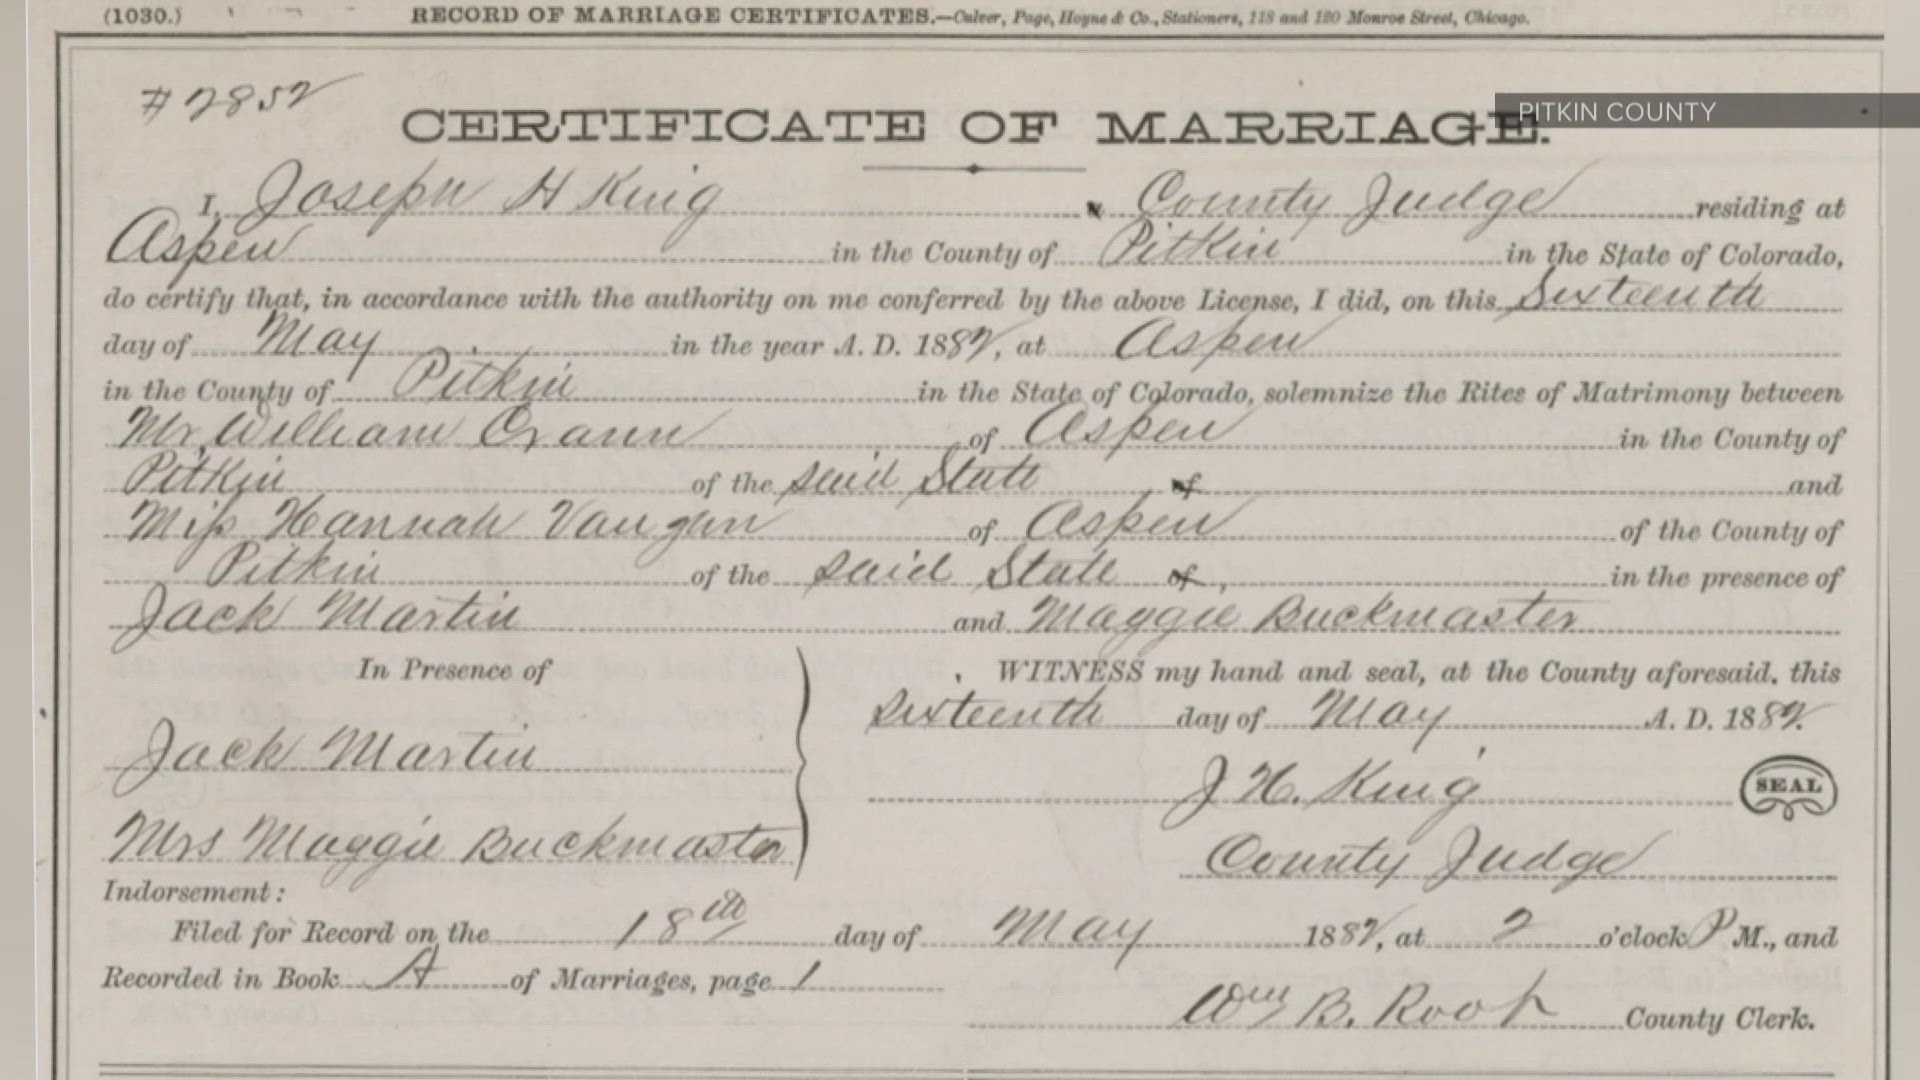 (1030.) RECORD OF MARRIAGE CERTIFICATES.—Culver, Page, Hoyne & Co., Stationers, 118 and 120 Monroe Street, Chicago.
#2852
PITKIN COUNTY
CERTIFICATE OF MARRIAGE.
I, Joseph H King County Judge residing at
Aspen in the County of Pitkin in the State of Colorado,
do certify that, in accordance with the authority on me conferred by the above License, I did, on this Sixteenth
day of May in the year A. D. 1882, at Aspen
in the County of Pitkin in the State of Colorado, solemnize the Rites of Matrimony between
Mr. William Crann of Aspen in the County of
Pitkin of the said State of and
Miss Hannah Vaughn of Aspen of the County of
Pitkin of the said State of, in the presence of
Jack Martin and Maggie Buckmaster
In Presence of
WITNESS my hand and seal, at the County aforesaid, this
Sixteenth day of May A. D. 1882.
Jack Martin
J H. King SEAL
Mrs Maggie Buckmaster
County Judge
Indorsement:
Filed for Record on the 18th day of May 1882, at 2 o'clock P M., and
Recorded in Book A of Marriages, page 1
Wm B. Root County Clerk.